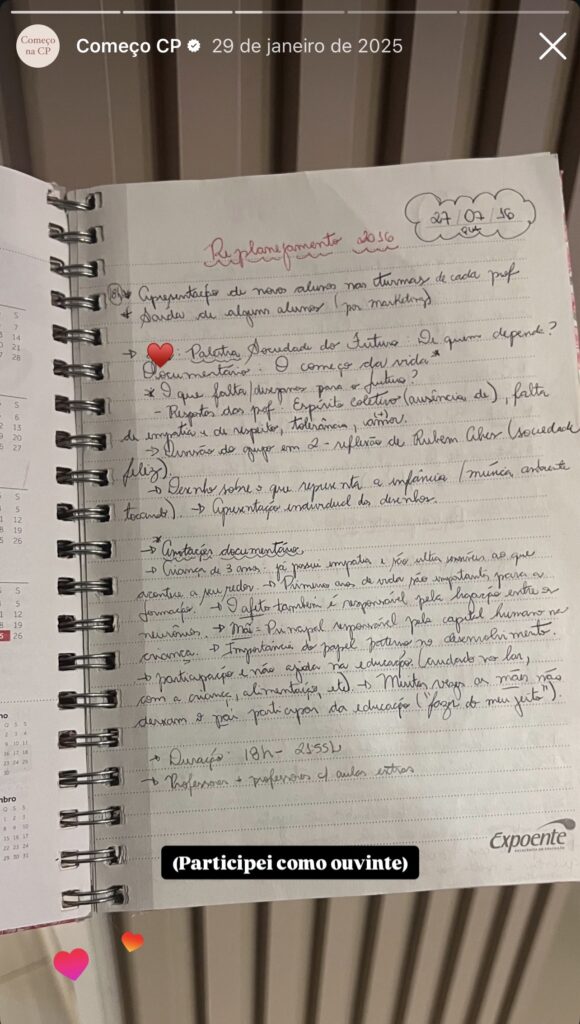 Começo na CP
Começo CP 29 de janeiro de 2025
27/07/16
qua
Replanejamento 2016
* Apresentação de novos alunos nas turmas de cada prof
* Saída de alguns alunos (por marketing)
→ : Palestra Sociedade do Futuro: De quem depende?
Documentário: O começo da vida*
* O que falta/ para o futuro?
- Respostas dos prof: Espírito coletivo (ausência de), falta
de empatia e de respeito, tolerância, amor.
→ Divisão do grupo em 2 - reflexão de Rubem Alves (sociedade
feliz).
→ Desenho sobre o que representa a infância (música ambiente
tocando). → Apresentação individual dos desenhos.
* → Anotações documentário
→ Criança de 3 anos: já possui empatia e são ultra sensíveis ao que
acontece a seu redor → Primeiros anos de vida são importantes para a
formação. → O afeto também é responsável pela ligação entre os
neurônios. → Mãe = Principal responsável pelo capital humano na
criança. → Importância do papel paterno no desenvolvimento.
→ participação e não ajuda na educação (cuidado no lar,
com a criança, alimentação, etc) → Muitas vezes as mães não
deixam o pai participar da educação ("faz do meu jeito").
→ Duração: 18h - 21:55h
→ Professores + professores c/ aulas extras
Expoente
(Participei como ouvinte)